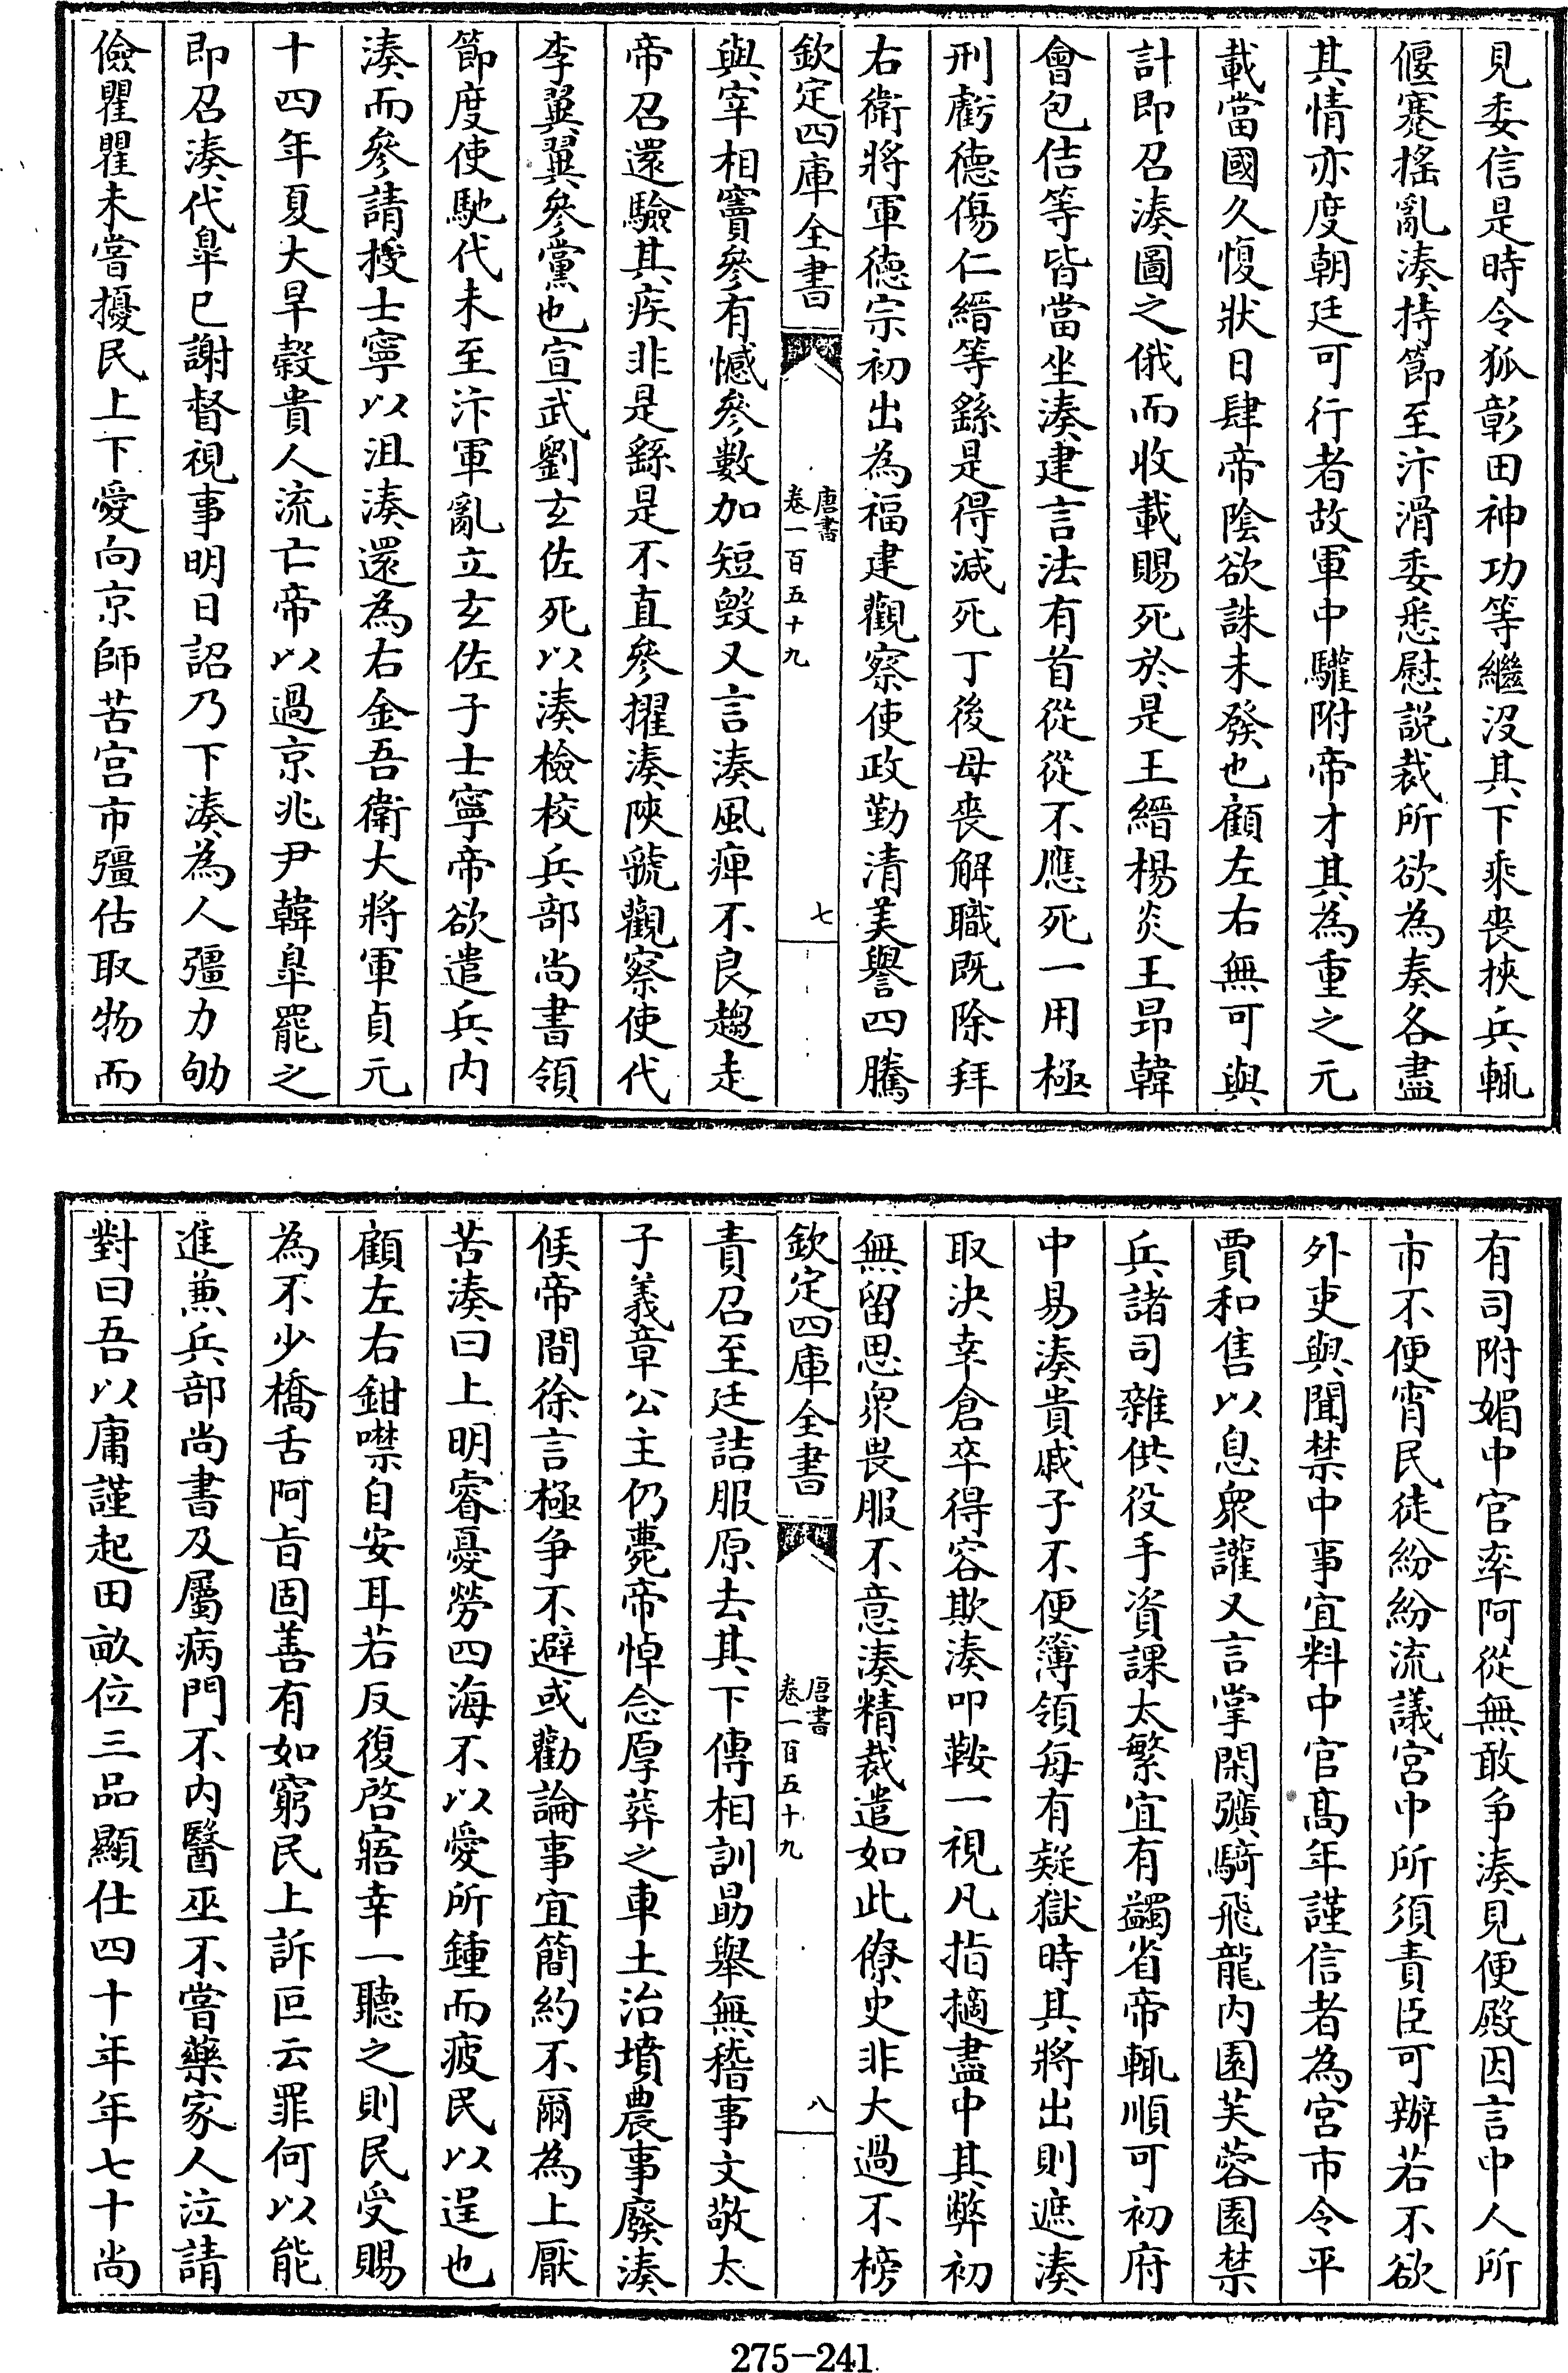 見委信是時令狐彰田神功等繼沒其下乘喪挾兵輒
偃蹇搖亂湊持節至汴滑委悉慰説裁所欲為奏各盡
其情亦度朝廷可行者故軍中驩附帝才其為重之元
載當國久愎狀日肆帝陰欲誅未發也顧左右無可與
計即召湊圖之俄而收載賜死於是王縉楊炎王昂韓
會包佶等皆當坐湊建言法有首從從不應死一用極
刑虧徳傷仁縉等繇是得減死丁後母喪解職既除拜
右衛將軍徳宗初出為福建觀察使政勤清美譽四騰
欽定四庫全書 唐書 卷一百五十九 七
與宰相竇參有憾參數加短毀又言湊風痺不良趨走
帝召還驗其疾非是繇是不直參擢湊陝虢觀察使代
李翼翼參黨也宣武劉玄佐死以湊檢校兵部尚書領
節度使馳代未至汴軍亂立玄佐子士寧帝欲遣兵内
湊而參請授士寧以沮湊還為右金吾衛大將軍貞元
十四年夏大旱穀貴人流亡帝以過京兆尹韓臯罷之
即召湊代臯已謝督視事明日詔乃下湊為人彊力劬
儉瞿瞿未嘗擾民上下愛向京師苦宫市彊估取物而
有司附媚中官率阿從無敢争湊見便殿因言中人所
市不便宵民徒紛紛流議宮中所須責臣可辦若不欲
外吏與聞禁中事宜料中官髙年謹信者為宮市令平
賈和售以息衆讙又言掌閑彍騎飛龍内園芙蓉園禁
兵諸司雜供役手資課太繁宜有蠲省帝輒順可初府
中易湊貴戚子不便簿領每有疑獄時其將出則遮湊
取決幸倉卒得容欺湊叩鞍一視凡指擿盡中其弊初
無留思衆畏服不意湊精裁遣如此僚史非大過不榜
欽定四庫全書 唐書 卷一百五十九 八
責召至廷詰服原去其下傳相訓勗舉無稽事文敬太
子義章公主仍薨帝悼念厚葬之車土治墳農事廢湊
候帝間徐言極争不避或勸論事宜簡約不爾為上厭
苦湊曰上明睿憂勞四海不以愛所鍾而疲民以逞也
顧左右鉗噤自安耳若反復啓寤幸一聽之則民受賜
為不少橋舌阿旨固善有如窮民上訴叵云罪何以能
進兼兵部尚書及屬病門不内醫巫不嘗藥家人泣請
對曰吾以庸謹起田畝位三品顯仕四十年年七十尚
275-241